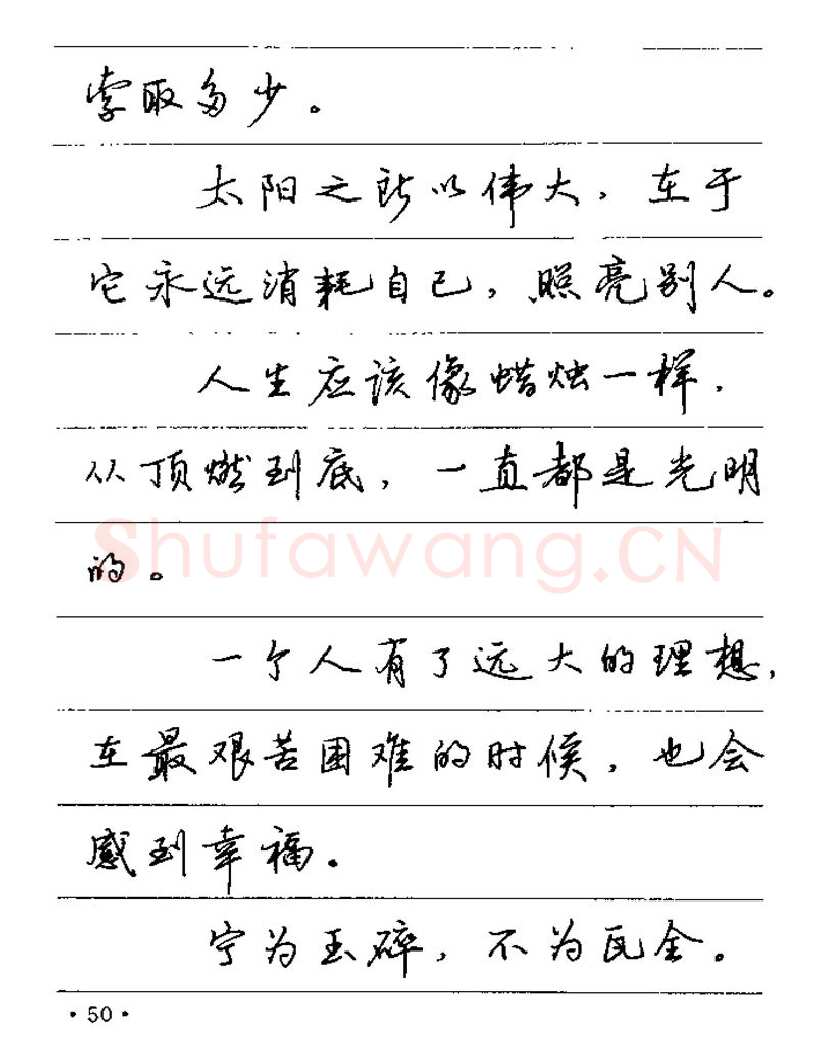 索取多少。
太阳之所以伟大，在于
它永远消耗自己，照亮别人。
人生应该像蜡烛一样，
从顶燃到底，一直都是光明
的。
shufawang.CN
一个人有了远大的理想，
在最艰苦困难的时候，也会
感到幸福。
宁为玉碎，不为瓦全。
·50·